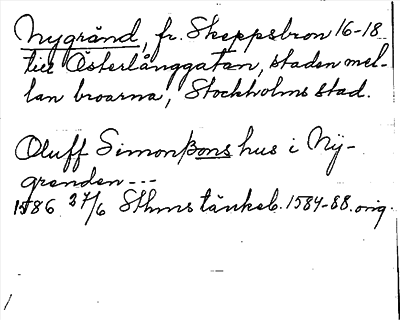 Nygränd, fr. Skeppsbron 16-18
till Österlånggatan, staden mel-
lan broarna, Stockholms stad.
Oluff Simonßons hus i Nÿ-
grenden---
1586 27/6 Sthms tänkeb. 1584-88. orig.